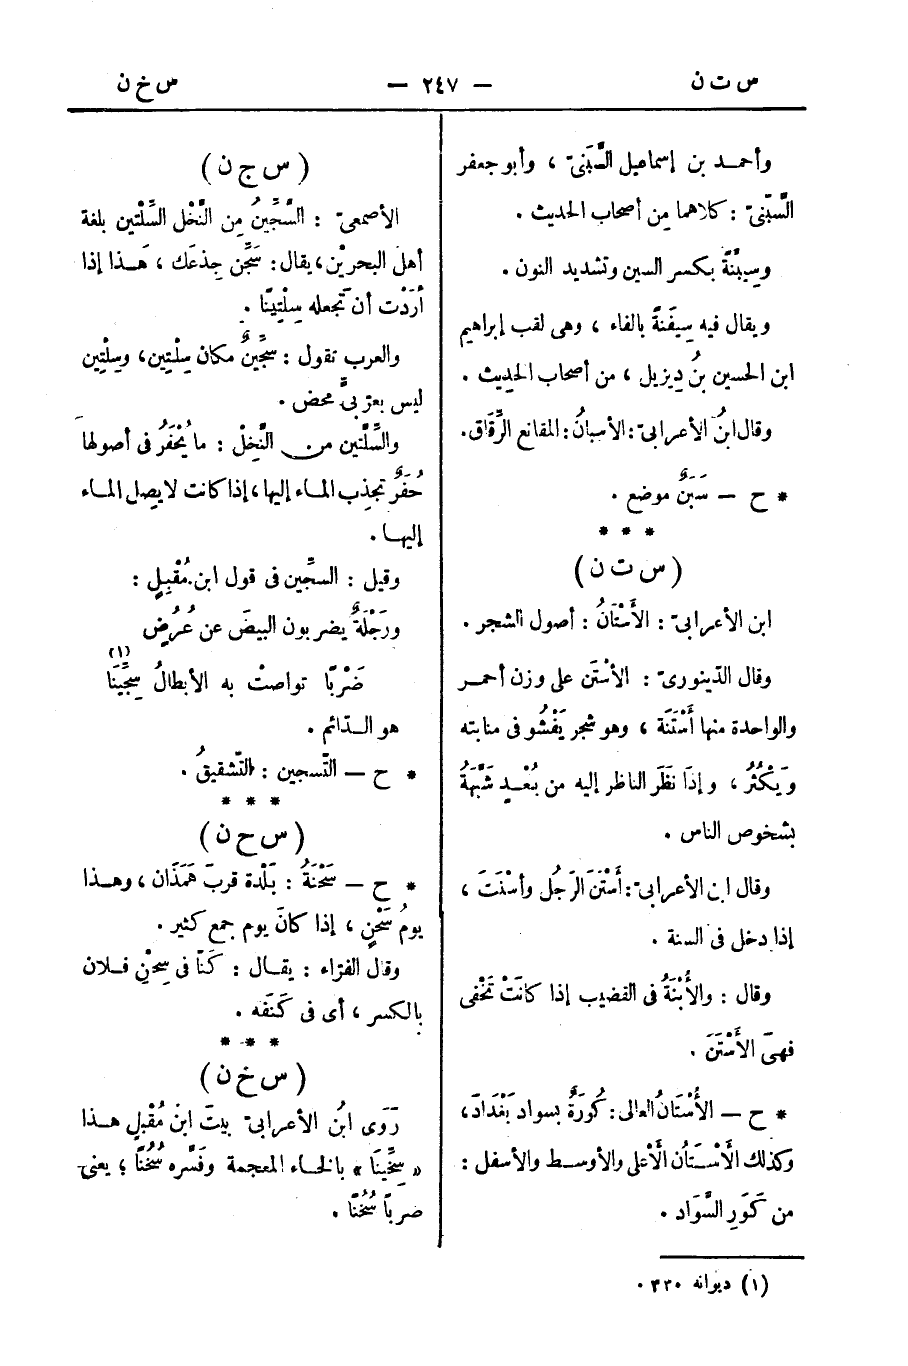 س ت ن — ٢٤٧ — س خ ن
وأحمد بن إسماعيل السَّبَنىّ ، وأبو جعفر
السَّبَنىّ : كلاهما مِن أصحاب الحديث .
وسِبَنَّةُ بكسر السين وتشديد النون .
ويقال فيه سِيفَنَةُ بالفاء ، وهى لقب إبراهيم
ابن الحسين بنُ دِيزيل ، من أصحاب الحديث .
وقال ابنُ الأعرابىّ : الأسبانُ : المقانع الرِّقاق .
* ح — سَبَنٌ موضع .
* * *
( س ت ن )
ابن الأعرابىّ : الأَسْتَانُ : أصول الشجر .
وقال الدّينورىّ : الأسْتَن على وزن أحمر
والواحدة منها أَسْتَنَة ، وهو شجر يَفْشُو فى منابته
وَيَكْثُرُ ، وإذَا نَظَرَ الناظر إليه من بُعْدٍ شَبَّهَهُ
بشخوص الناس .
وقال ابن الأعرابىّ : أَسْتَنَ الرَجُل وأسْنَتَ ،
إذا دخل فى السنة .
وقال : والأُبْنَةُ فى القضيب إذا كانَتْ تَخْفى
فهىَ الأَسْتَنَ .
* ح — الأُسْتَانُ العالى : كُورَةٌ بسواد بَغْدَادَ ،
وكذلك الأُسْتَانُ الأَعْلى والأوسط والأسفل :
من كُوَرِ السَّوَاد .
( س ج ن )
الأصمعىّ : السِّجِّينُ مِن النَّخْل السِّلْتِين بلغة
أهل البحريْن ، يقال : سَجِّن جِذعَك ، هَذا إذا
أرَدْت أن تجعله سِلْتِينًا .
والعرب تقول : سِجِّينٌ مكان سِلْتِين ، وسِلْتِين
ليس بعربىٍّ محض .
والسِّلتين من النَّخِلْ : ما يُحْفَرُ فى أصولها
حُفَرٌ تجذِب الماء إليها ، إذا كانت لا يصِل الماء
إليها .
وقيل : السجِّين فى قول ابن مُقْبِلٍ :
ورَجْلَةٌ يضربون البيضَ عن عُرُضٍ
ضَرْبًا تواصتْ به الأبطالُ سِجِّينَا (١)
هو الدّائم .
* ح — التّسجين : التّشقيقُ .
* * *
( س ح ن )
* ح — سَحْنَةُ : بَلْدة قربَ هَمَذَان ، وهذا
يومُ سَحْنٍ ، إذا كانَ يوم جمع كثير .
وقال الفرّاء : يقال : كنّا فى سِحْنِ فلان
بالكسر ، أى فى كَنَفه .
* * *
( س خ ن )
رَوَى ابنُ الأعرابىّ بيتَ ابن مُقْبلٍ هذا
« سِخِّينَا » بالخاء المعجمة وفَسَّره سُخُنًا ؛ يعنى
ضربًا سُخُنًا .
(١) ديوانه ٣٣٠ .